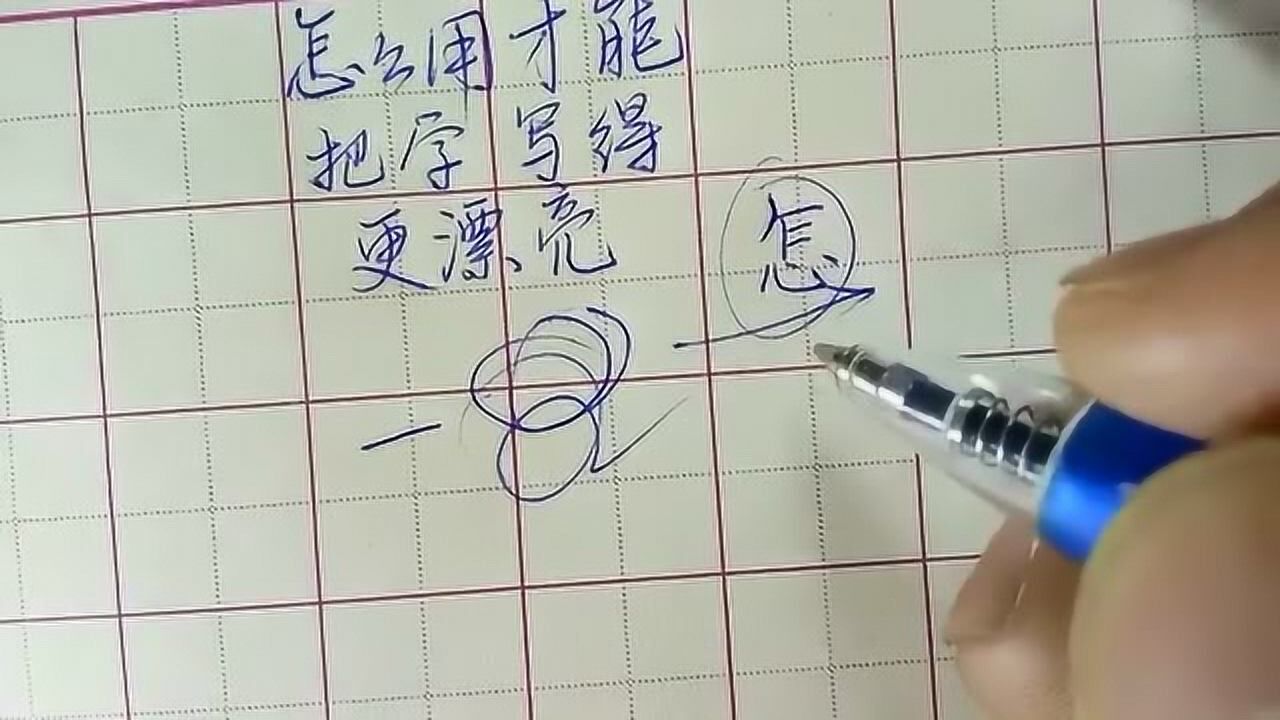 怎么用才能
把字写得
更漂亮
怎